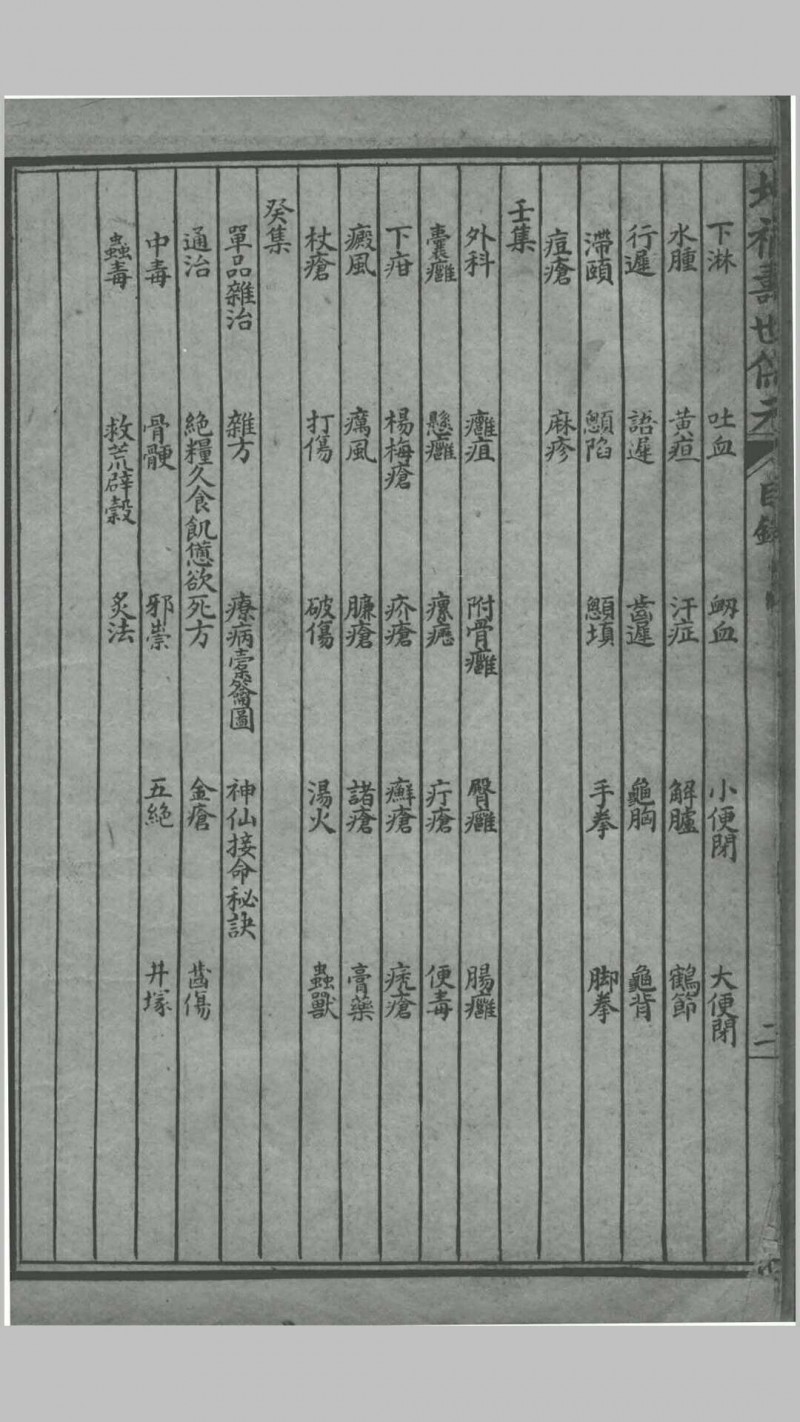 壽世保元 目錄 二
下淋 吐血 衂血 小便閉 大便閉
水腫 黃疸 汗症 解臚 鶴節
行遲 語遲 齒遲 龜胸 龜背
滯頤 顖陷 顖塡 手拳 脚拳
痘瘡 麻疹
壬集
外科 癰疽 附骨癰 臀癰 腸癰
囊癰 懸癰 瘰癧 疔瘡 便毒
下疳 楊梅瘡 疥瘡 癬瘡 禿瘡
癜風 癘風 臁瘡 諸瘡 膏藥
杖瘡 打傷 破傷 湯火 蟲獸
癸集
單品雜治 雜方 療病槖籥圖 神仙接命秘訣
通治 絕糧久食飢憊欲死方 金瘡 齒傷
中毒 骨骾 邪祟 五絕 井塚
蟲毒 救荒辟穀 炙法